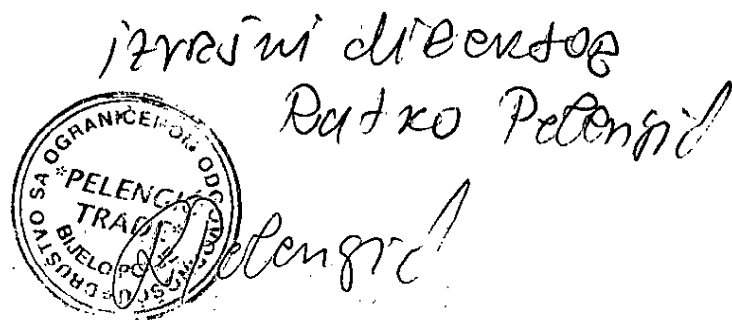 izvršni direktor
Ratko Pelengić
DRUŠTVO SA OGRANIČENOM ODGOVORNOŠĆU
"PELENGIĆ
TRADE"
BIJELO POLJE
R Pelengić